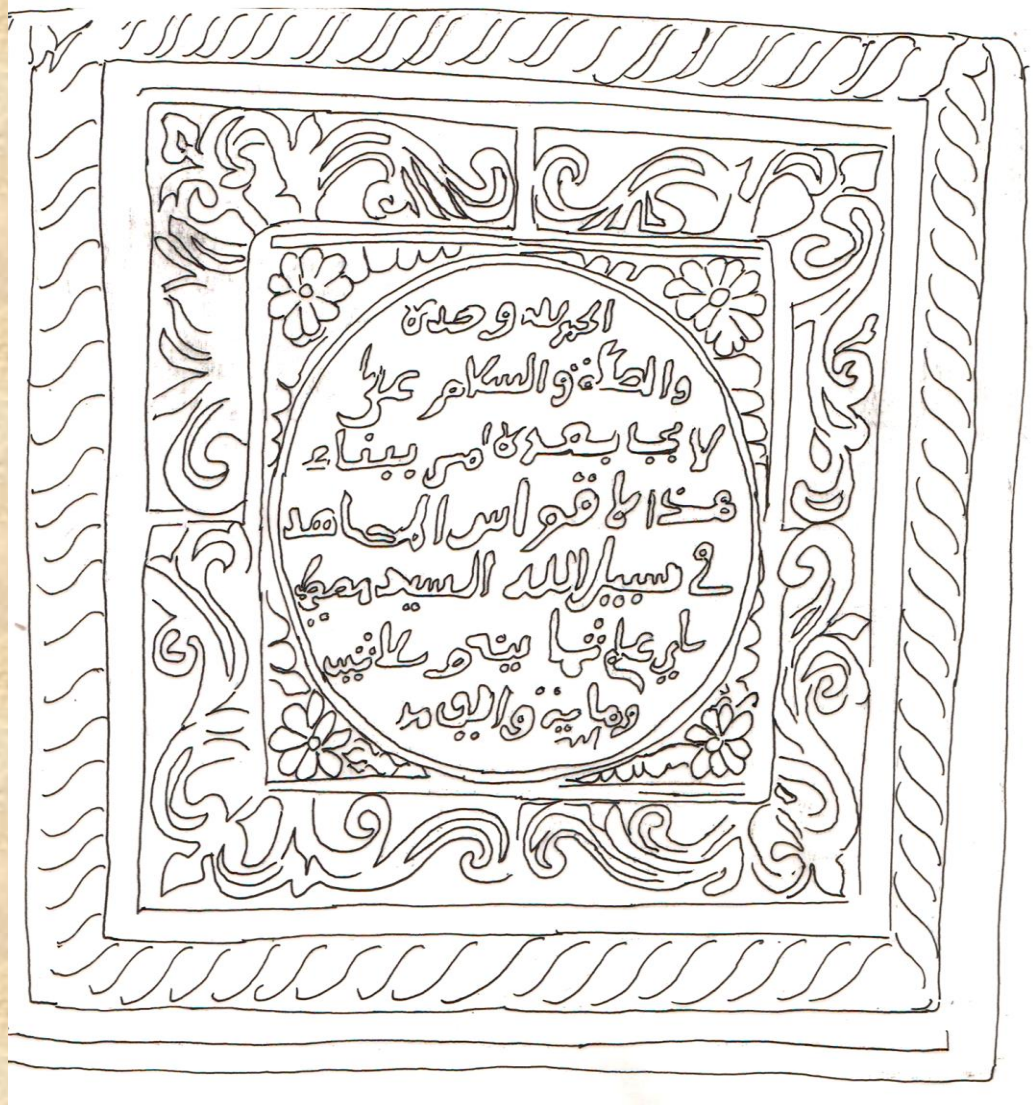 الحمد لله وحده
والصلاة والسلام على
لا نبي بعده امر ببناء
هذا الاقواس المجاهد
في سبيل الله السيد مصطفى
باي عام ثمانية و ثلاثين
ومايتين والف